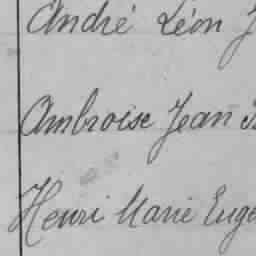 André Léon
Ambroise Jean
Henri Marie Euge